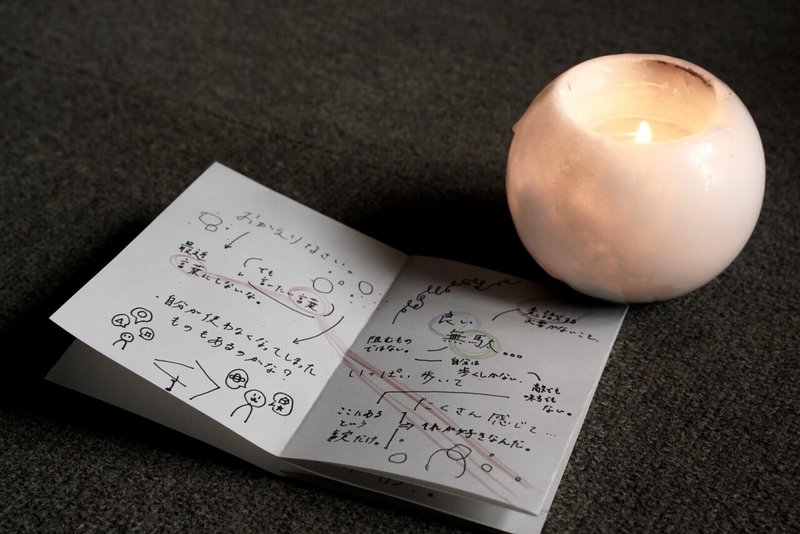 おかえりなさい。
最近
言葉にしないな。
(でも
言った 言葉)
自分が使わなくなってしまった
ものもあるのかな?
良い
無駄...
阻むもの
ではない。
自分は
歩くしかない。
敵でも
味方でも
ない。
いっぱい 歩いて
たくさん 感じて...
ここにある
という
事実だけ。
それが好きなんだ。